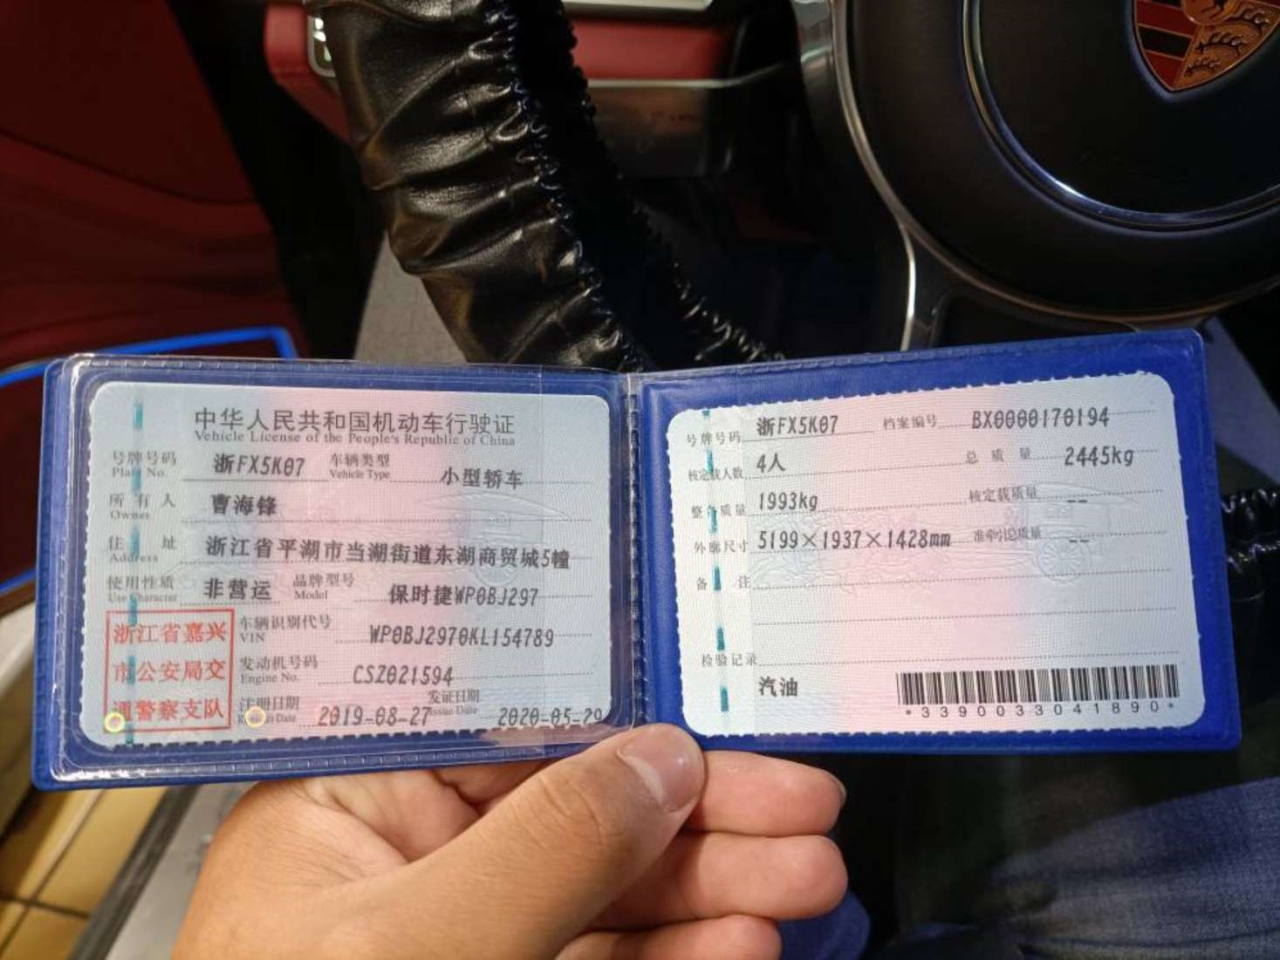 中华人民共和国机动车行驶证
Vehicle License of the People's Republic of China
号牌号码 浙FX5K07 车辆类型 小型轿车
Plate No. Vehicle Type
所有人 曹海锋
Owner
住址 浙江省平湖市当湖街道东湖商贸城5幢
Address
使用性质 非营运 品牌型号 保时捷WP0BJ297
Use Character Model
浙江省嘉兴
市公安局交
通警察支队
车辆识别代号 WP0BJ2970KL154789
VIN
发动机号码 CSZ021594
Engine No.
注册日期 2019-08-27 发证日期 2020-05-29
Date Issue Date
号牌号码 浙FX5K07 档案编号 BX0000170194
核定载人数 4人 总质量 2445kg
整备质量 1993kg 核定载质量 --
外廓尺寸 5199×1937×1428mm 准牵引总质量 --
备注
检验记录
汽油
*3390033041890*